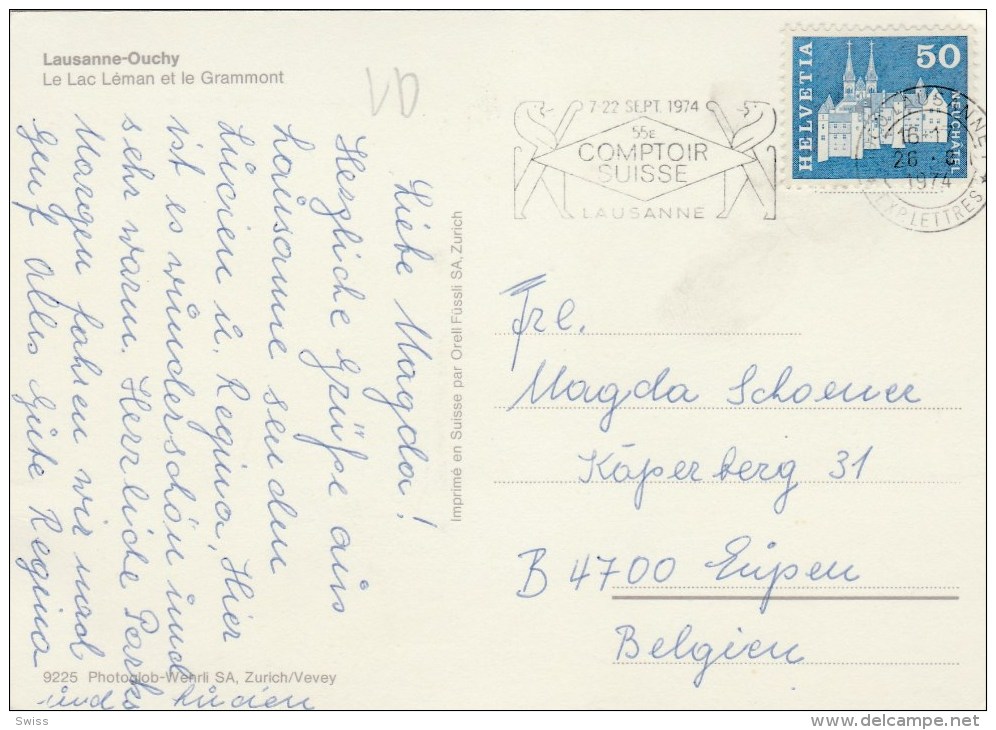 Lausanne-Ouchy
Le Lac Léman et le Grammont
VD
7-22 SEPT. 1974
55E
COMPTOIR
SUISSE
LAUSANNE
HELVETIA
50
NEUCHATEL
LAUSANNE
1974
EXP LETTRES
Liebe Magda!
Herzliche Grüße aus
Lausanne senden
Lucien u. Regina, Hier
ist es wunderschön und
sehr warm. Herrliche Parks
Morgen fahren wir nach
Genf Alles Gute Regina
und Lucien
Imprimé en Suisse par Orell Füssli SA, Zurich
Frl.
Magda Schoener
Käperberg 31
B 4700 Eupen
Belgien
9225 Photoglob-Wehrli SA, Zurich/Vevey
Swiss
delcampe.net